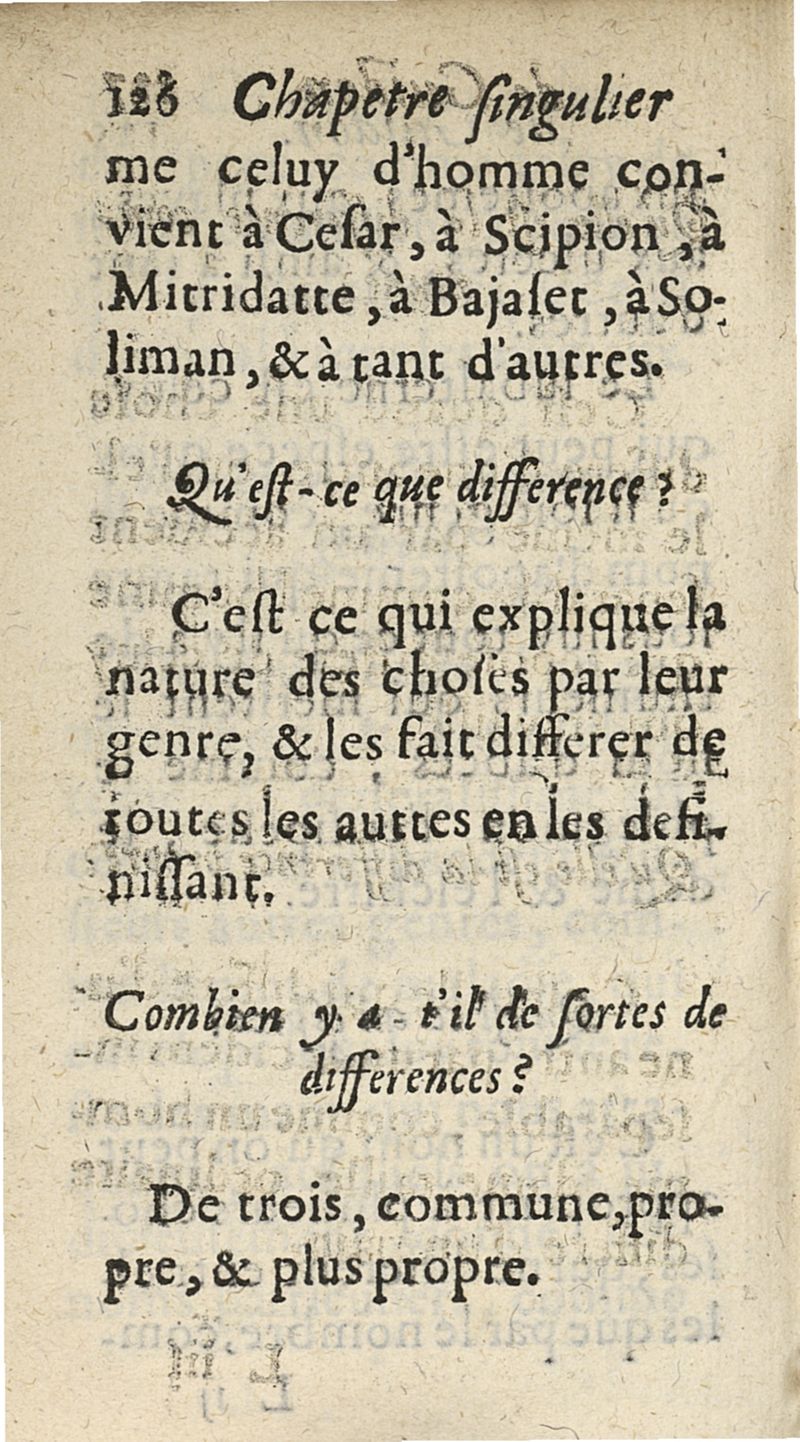 126 Chapetre ſingulier
me celuy d'homme con-
vient à Ceſar, à Scipion, à
Mitridatte, à Bajaſet, à So-
liman, & à tant d'autres.
Qu'eſt-ce que difference?
C'eſt ce qui explique la
nature des choſes par leur
genre, & les fait differer de
toutes les auttes en les defi-
niſſant.
Combien y a-t'il de ſortes de
differences?
De trois, commune, pro-
pre, & plus propre.